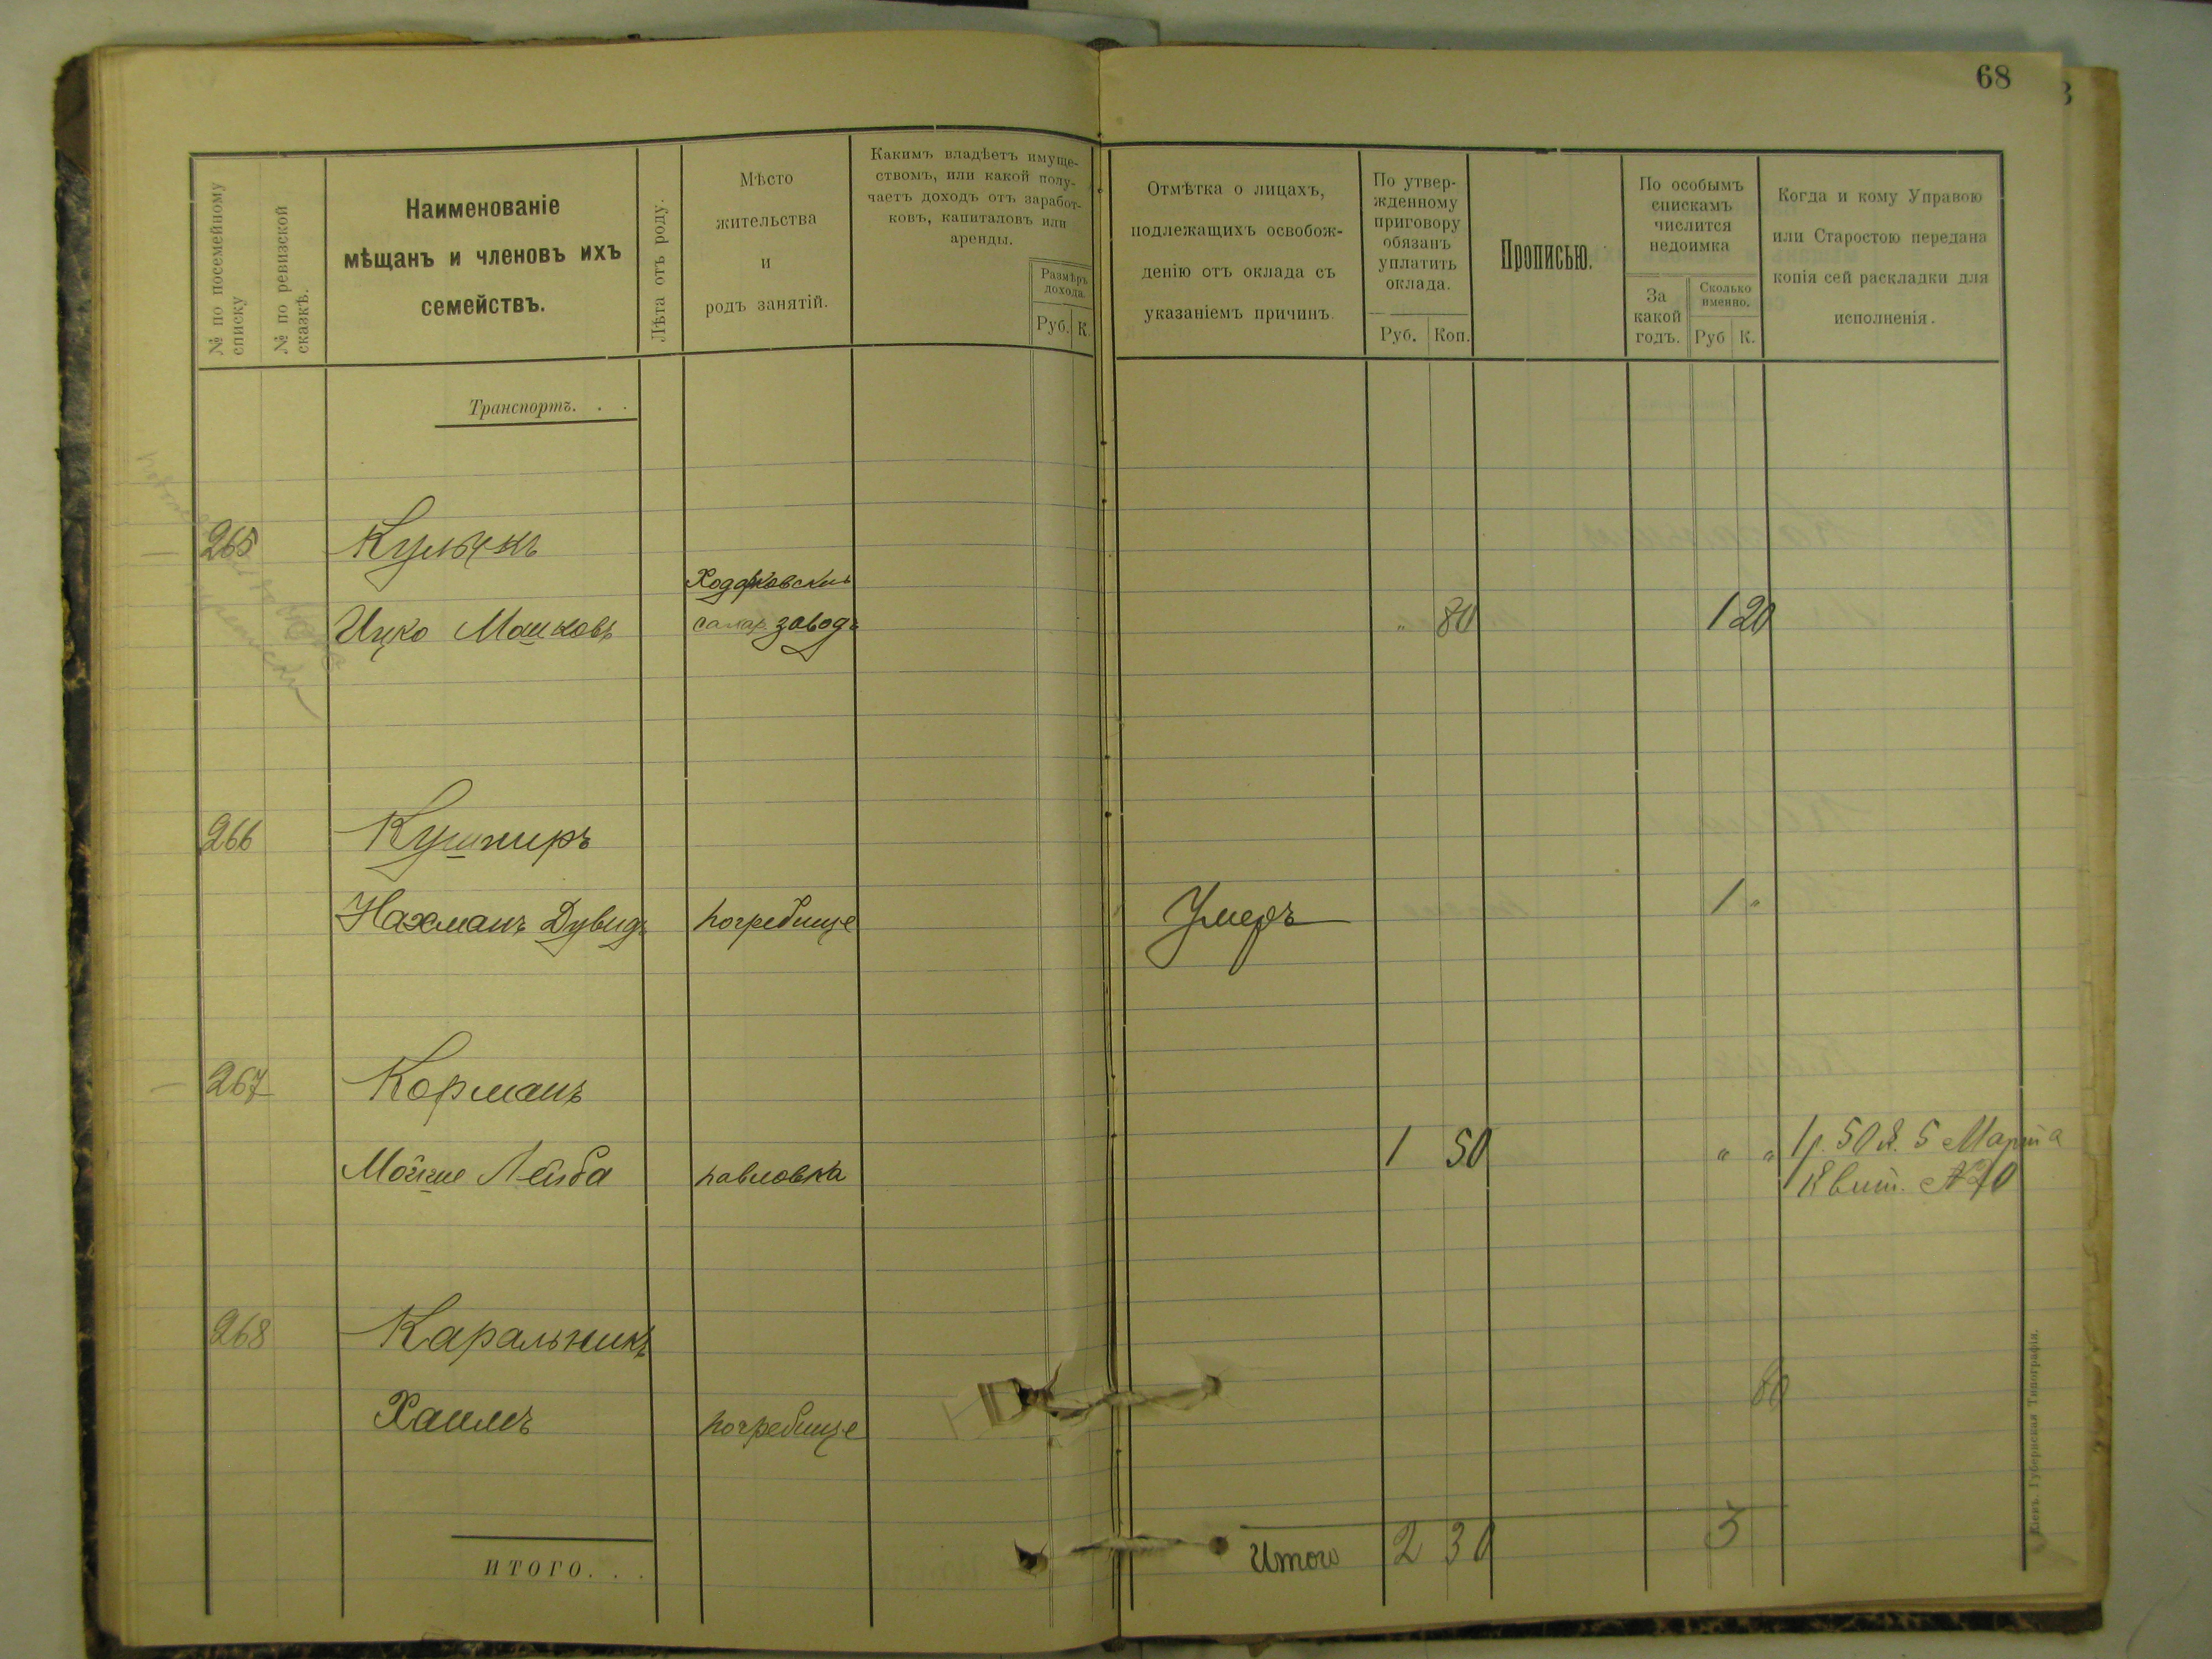 68
№ по посемейному
списку
№ по ревизской
сказкѣ.
Наименованіе
мѣщанъ и членовъ ихъ
семействъ.
Лѣта отъ роду.
Мѣсто
жительства
и
родъ занятій.
Какимъ владѣетъ имуще-
ствомъ, или какой полу-
чаетъ доходъ отъ заработ-
ковъ, капиталовъ или
аренды.
Размѣръ
дохода.
Руб. К.
Отмѣтка о лицахъ,
подлежащихъ освобож-
денію отъ оклада съ
указаніемъ причинъ.
По утвер-
жденному
приговору
обязанъ
уплатить
оклада.
Руб. Коп.
Прописью.
По особымъ
спискамъ
числится
недоимка
За
какой
годъ.
Сколько
именно.
Руб К.
Когда и кому Управою
или Старостою передана
копія сей раскладки для
исполненія.
Транспортъ. . .
265
Ицко Мошковъ
завод
" 80
1 20
266 Кушниръ
Нахманъ Дувидъ погребище Умеръ 1 "
267 Корманъ
Мойше Лейба павловка 1 50 " " 1 р. 50 к. 5 Марта
Квит.
268 Каральникъ
80
Хаимъ погребище
Итого 2 30 3
ИТОГО. . .
Кіевъ. Губернская Типографія.